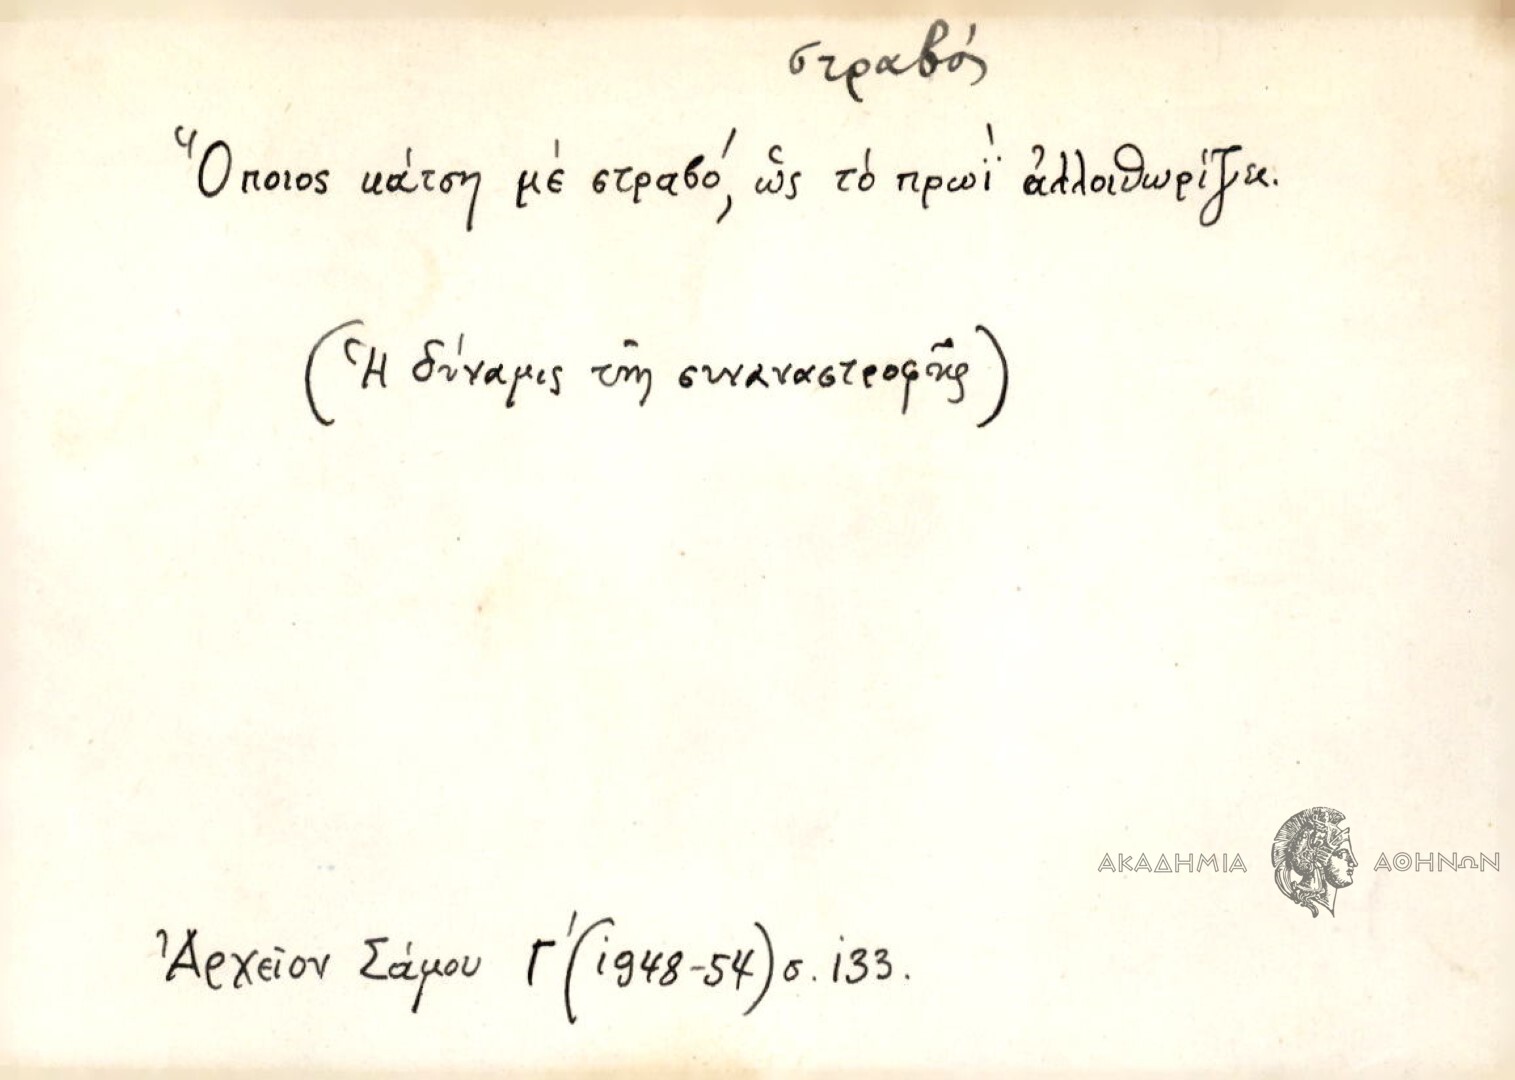 στραβός
Ὅποιος κάτση μέ στραβό, ὥς τό πρωΐ ἀλλοιθωρίζει.
(Ἡ δύναμις τῆς συναναστροφῆς)
ΑΚΑΔΗΜΙΑ ΑΘΗΝΩΝ
Ἀρχεῖον Σάμου Γ΄ (1948-54) σ. 133.